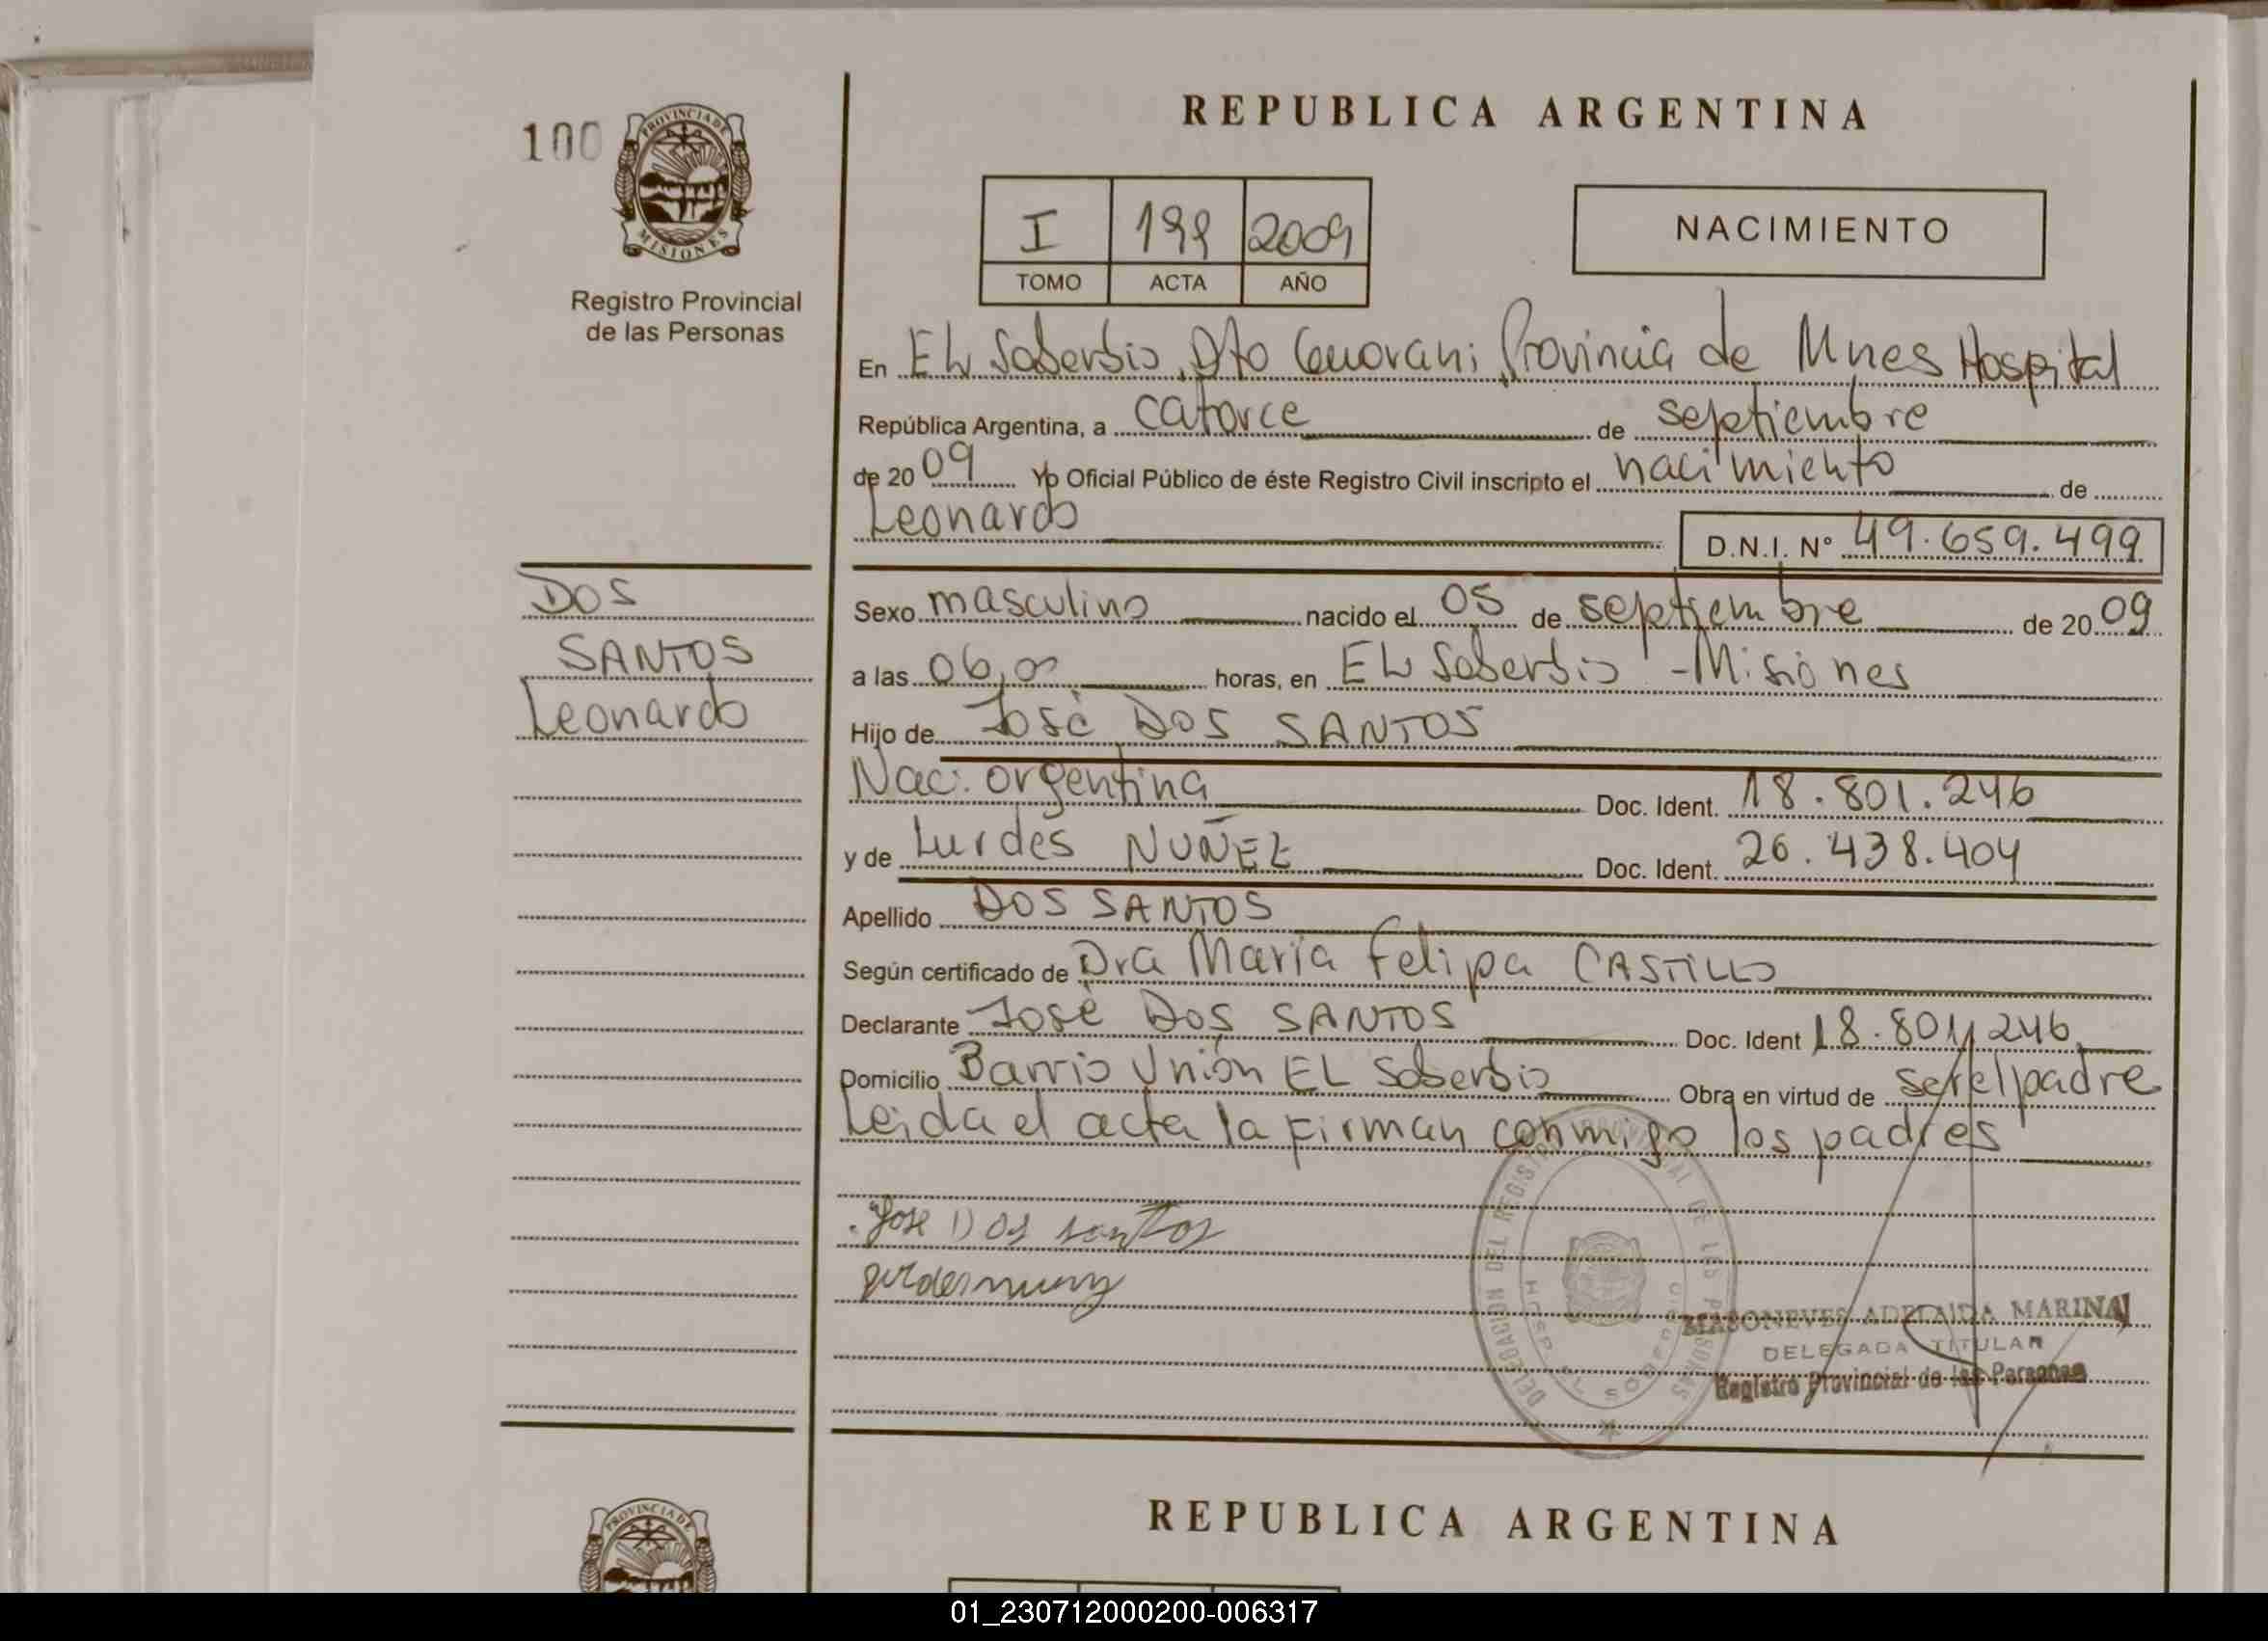 REPUBLICA ARGENTINA
100
PROVINCIA DE
MISIONES
Registro Provincial
de las Personas
I 199 2009
TOMO ACTA AÑO
NACIMIENTO
En EL Soberbio, Dto Guarani, Provincia de Mnes Hospital
República Argentina, a catorce de septiembre
de 2009 Yo Oficial Público de éste Registro Civil inscripto el nacimiento de
Leonardo
D.N.I. Nº 49.659.499
DOS
SANTOS
Leonardo
Sexo masculino nacido el 05 de septiembre de 2009
a las 06,00 horas, en EL Soberbio - Misiones
Hijo de José DOS SANTOS
Nac: argentina Doc. Ident. 18.801.246
y de Lurdes NUÑEZ Doc. Ident. 26.438.404
Apellido DOS SANTOS
Según certificado de Dra María Felipa CASTILLO
Declarante José DOS SANTOS Doc. Ident 18.801.246
Domicilio Barrio Unión EL Soberbio Obra en virtud de ser el padre
Leida el acta la firman conmigo los padres
Jose Dos santos
DELEGACION DEL REGISTRO PROVINCIAL DE LAS PERSONAS
HOSPITAL SOBERBIO
ADELAIDA MARINA
DELEGADA TITULAR
Registro Provincial de las Personas
PROVINCIA DE
REPUBLICA ARGENTINA
01_230712000200-006317